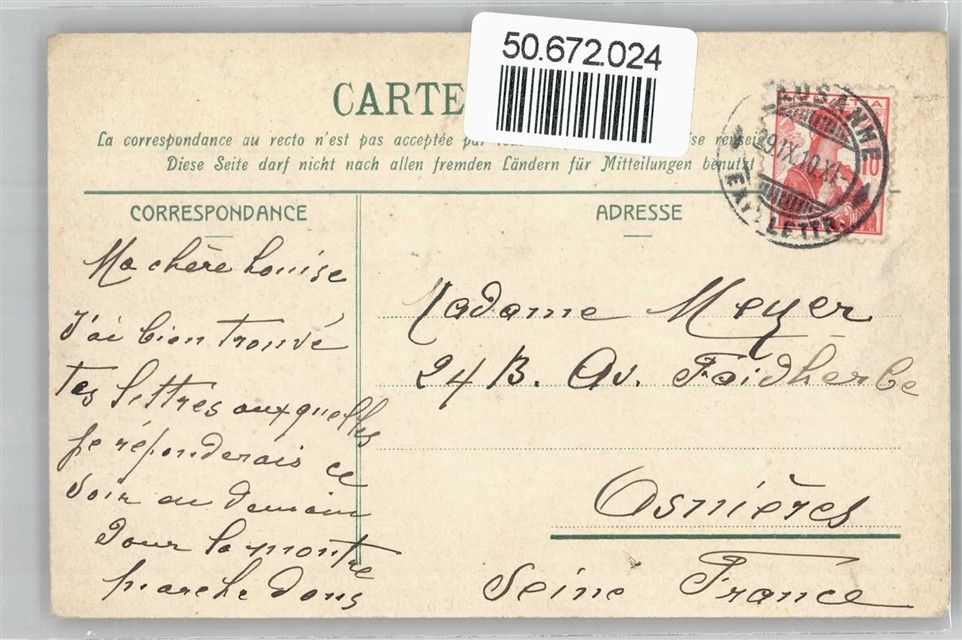 50.672.024
CARTE
La correspondance au recto n'est pas acceptée par se
Diese Seite darf nicht nach allen fremden Ländern für Mitteilungen benutzt
LAUSANNE
29.IX.10.XI-
EXP. LETTR.
10
CORRESPONDANCE
ADRESSE
Ma chère Louise
J'ai bien trouvé
tes lettres auxquelles
je réponderais ce
soir ou demain
Pour la montre
marche dous
Madame Meyer
24 B. Av. Faidherbe
Asnières
Seine France